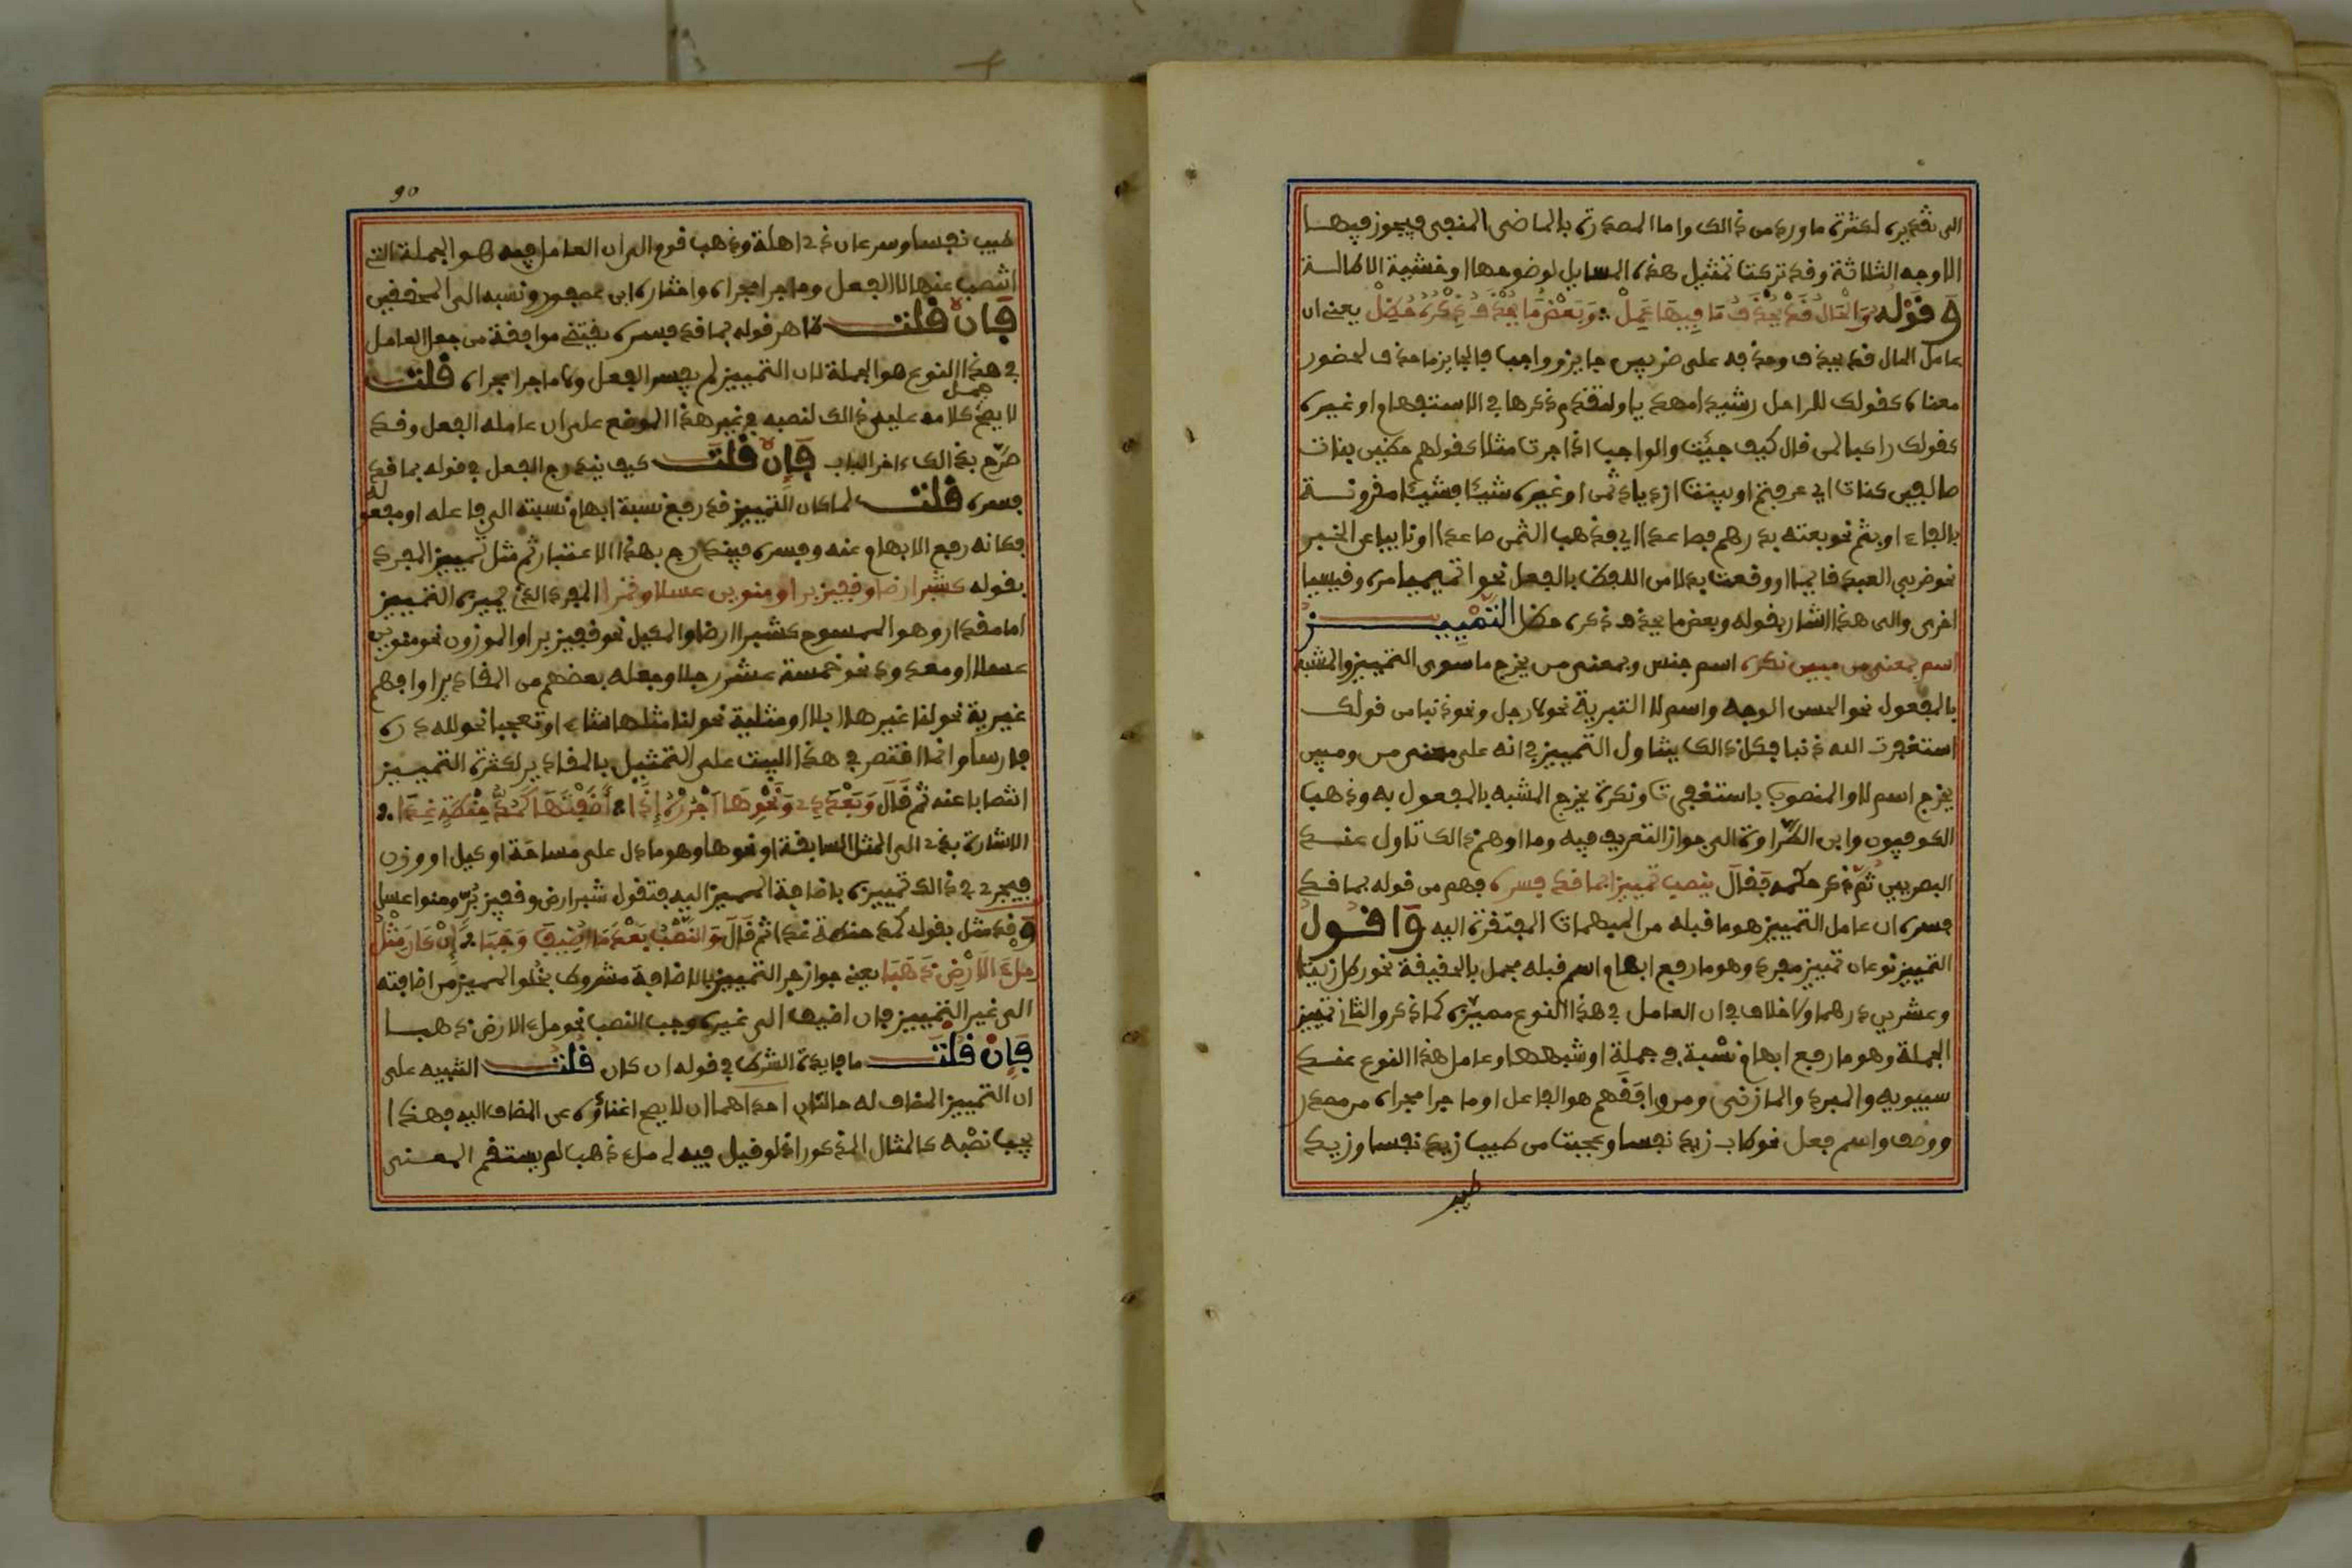 الى تقدير لكثرة ما ورد من ذالك واما المصدرة بالماضى المنفى فيجوز فيها
الاوجه الثلاثة وقد تركنا تمثيل هذه المسايل لوضوحها او خشية الاطالة
وَقَوْلُهُ وَالْحَالُ قَدْ يُحْذَفُ مَا فِيهَا عَمِلْ وَبَعْضُ مَا يُحْذَفُ ذِكْرُهُ حُظِلْ يعنى ان
عامل الحال قد يحذف وحذفه على ضربين جايز وواجب فالجايز ما حذف لحضور
معناه كقولك للراحل رشيدا مهديا ولتقدم ذكرها في الاستفهام او غيره
كقولك راكبا لمن قال كيف جئت والواجب اذا جرت مثلا كقولهم حظيين بنات
صالفين كنات اي عرفتم او بينت ازدياد ثمن او غيره شيئا فشيئا مقرونة
بالفاء او بثم نحو بعته بدرهم فصاعدا اي فذهب الثمن صاعدا او نايبا عن الخبر
نحو ضربى العبد قايما او وقعت بدلا من اللفظ بالفعل نحو اتميميا مرة وقيسيا
اخرى والى هذا اشار بقوله وبعض ما يحذف ذكره حظل التَّمْيِيـزُ
اسم بمعنى من مبين نكره اسم جنس وبمعنى من يخرج ما سوى التمييز والمشبه
بالمفعول نحو الحسن الوجه واسم لا التبرية نحو لا رجل ونحو ذنبا من قولك
استغفرت الله ذنبا فكل ذالك يشاول التمييز في انه على معنى من ومبين
يخرج اسم لا والمنصوب باستغفرت ونكرة يخرج المشبه بالمفعول به وذهب
الكوفيون وابن الطراوة الى جواز التعريف فيه وما اوهم ذالك تاول عند
البصريين ثم ذكر حكمه فَقَالَ ينصب تمييزا بما قد فسره فهم من قوله بما قد
فسره ان عامل التمييز هو ما قبله من المبهمات المفتقرة اليه وَاقـول
التمييز نوعان تمييز مفرد وهو ما رفع ابهام اسم قبله مجمل بالحقيقة نحو رطل زيتا
وعشرين درهما ولا خلاف في ان العامل في هذا النوع مميزه كما ذكر والثانى تمييز
الجملة وهو ما رفع ابهام نسبة في جملة او شبهها وعامل هذا النوع عند
سيبويه والمبرد والمازنى ومن وافقهم هو الفاعل او ما جرا مجراه من مصدر
ووصف واسم فعل نحو طاب زيد نفسا وعجبت من طيب زيد نفسا وزيد
طيب
90
طيب نفسا وسرعان ذي اهلة وذهب قوم الى ان العامل فيه هو الجملة التى
انتصب عنها لا الفعل وما جرا مجراه واختاره ابن عصفور ونسبه الى المحققين
فَإِنْ قُلْتَ ظاهر قوله بما قد فسره يقتضى موافقة من جعل العامل
في هذا النوع هو الجملة لان التمييز لم يفسر الفعل ولا ما جرا مجراه قُلْتُ
لا يصح حمل كلامه على ذالك لنصبه في غير هذا الموضع على ان عامله الفعل وقد
صرّح بذالك ءاخر الباب فَإِنْ قُلْتَ كيف يندرج الفعل في قوله بما قد
فسره قُلْتُ لما كان التمييز قد رفع نسبة ابهام نسبته الى فاعله او مفعوله
فكانه رفع الابهام عنه وفسره فيندرج بهذا الاعتبار ثم مثل تمييز المفرد
بقوله كشبر ارضا وقفيز برا ومنوين عسلا وتمرا المفرد الذي يميزه التمييز
اما مقدار وهو الممسوح كشبر ارضا والمكيل نحو قفيز برا والموزون نحو منوين
عسلا او معدود نحو خمسة عشر رجلا وجعله بعضهم من المقادير او افهم
غيرية نحو لنا غيرها ابلا او مثلية نحو لنا مثلها شاء او تعجبا نحو لله دره
فارسا وانما اقتصر في هذا البيت على التمثيل بالمقادير لكثرة التمييز
انتصابا عنه ثم قَالَ وَبَعْدَ ذِي وَنَحْوِهَا اجْرُرْهُ إِذَا أَضَفْتَهَا كَمُدُّ حِنْطَةٍ غِذَا
الاشارة بذي الى المثل السابقة او نحوها وهو ما دل على مساحة او كيل او وزن
فيجرى في ذالك تمييزه باضافة المميز اليه فتقول شبر ارض وقفيز برّ ومنوا عسل
وقد مثل بقوله كمد حنطة غذا ثم قَالَ وَالنَّصْبُ بَعْدَ مَا أُضِيفَ وَجَبَا إِنْ كَانَ مِثْلَ
مِلْءِ الَارْضِ ذَهَبَا يعنى جواز جر التمييز بالاضافة مشروط بخلوا المميز من اضافته
الى غير التمييز فان اضيف الى غيره وجب النصب نحو ملء الارض ذهبا
فَإِنْ قُلْتَ ما فايدة الشرط في قوله ان كان قُلْتُ التنبيه على
ان التمييز المضاف له حالتان احداهما ان لا يصح اغناؤه عن المضاف اليه فهذا
يجب نصْبه كالمثال المذكور اذ لو قيل فيه لي ملء ذهب لم يستقم المعنى